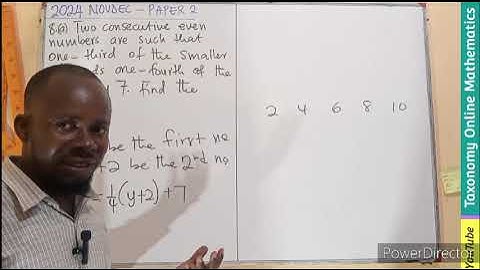 2024 NOVDEC - PAPER 2
8.(a) Two consecutive even
numbers are such that
one-third of the smaller
one-fourth of the
7. Find the
be the first no
+2 be the 2nd no
= 1/4(y+2) + 7
2 4 6 8 10
Taxonomy Online Mathematics
YouTube
PowerDirector